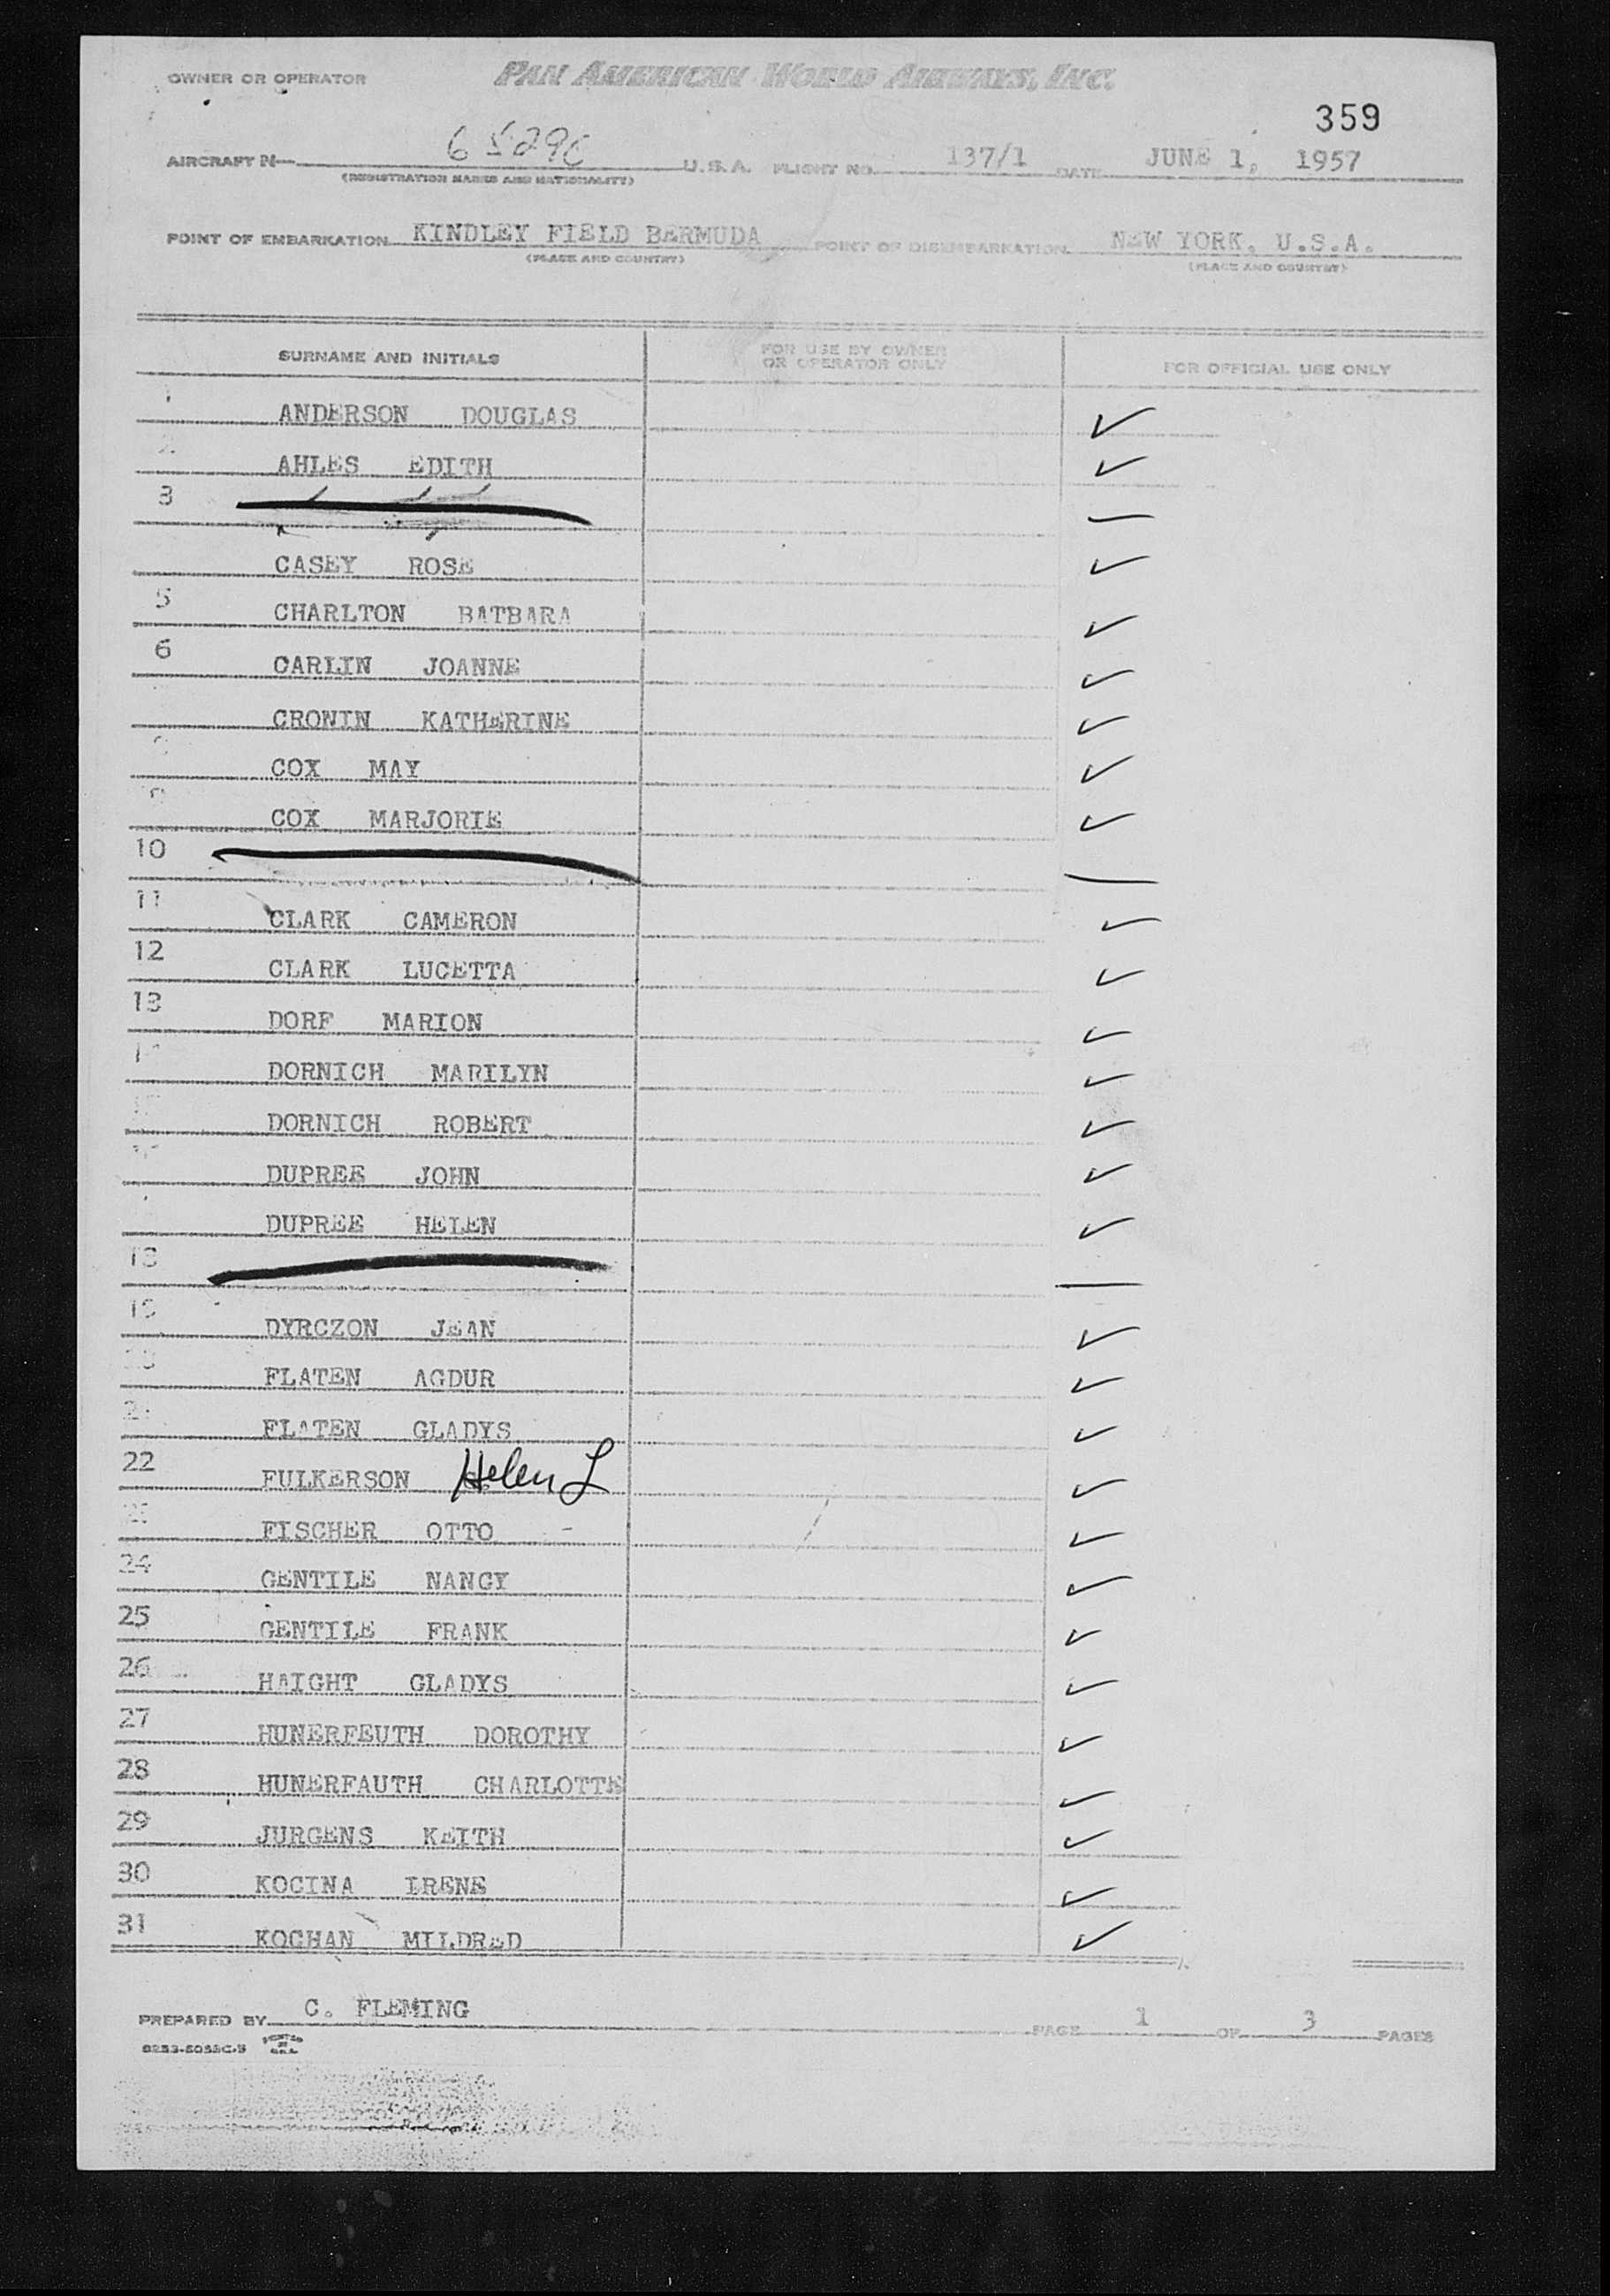 OWNER OR OPERATOR PAN AMERICAN WORLD AIRWAYS, INC.
359
AIRCRAFT N— U.S.A. FLIGHT NO. 137/1 DATE JUNE 1, 1957
(REGISTRATION MARKS AND NATIONALITY)
POINT OF EMBARKATION KINDLEY FIELD BERMUDA POINT OF DISEMBARKATION NEW YORK, U.S.A.
(PLACE AND COUNTRY) (PLACE AND COUNTRY)
SURNAME AND INITIALS FOR USE BY OWNER OR OPERATOR ONLY FOR OFFICIAL USE ONLY
1 ANDERSON DOUGLAS ✓
2 AHLES EDITH ✓
3 —
CASEY ROSE ✓
5 CHARLTON BATBARA ✓
6 CARLIN JOANNE ✓
CRONIN KATHERINE ✓
COX MAY ✓
COX MARJORIE ✓
10 —
11 CLARK CAMERON ✓
12 CLARK LUCETTA ✓
13 DORF MARION ✓
DORNICH MARILYN ✓
DORNICH ROBERT ✓
DUPREE JOHN ✓
DUPREE HELEN ✓
18 —
19 DYRCZON JEAN ✓
FLATEN AGDUR ✓
FLATEN GLADYS ✓
22 FULKERSON Helen L ✓
FISCHER OTTO ✓
24 GENTILE NANCY ✓
25 GENTILE FRANK ✓
26 HAIGHT GLADYS ✓
27 HUNERFEUTH DOROTHY ✓
28 HUNERFAUTH CHARLOTTE ✓
29 JURGENS KEITH ✓
30 KOCINA IRENE ✓
31 KOCHAN MILDRED ✓
PREPARED BY C. FLEMING PAGE 1 OF 3 PAGES
PRINTED IN U.S.A.